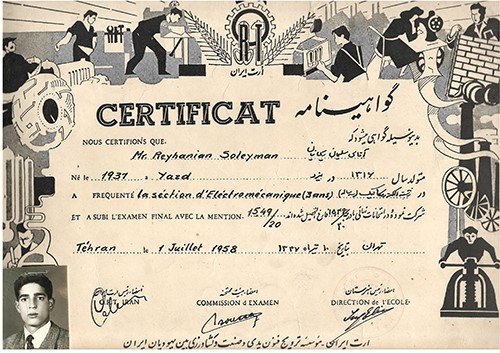 ORT
ارت ایران
CERTIFICAT گواهینامه
NOUS CERTIFIONS QUE. بدینوسیله گواهی میشود که
Mr. Reyhanian Soleyman آقای سلیمان ریحانیان
Né le 1937 à Yazd متولد سال ۱۳۱۷ در یزد
A FREQUENTÉ la séction d'Eléctromécanique (3ans) در
ET A SUBI L'EXAMEN FINAL AVEC LA MENTION. 15.49/20 شرکت نموده و در امتحانات نهائی
Téhran le 1 Juillet 1958 تهران بتاریخ ۱۰ تیرماه ۱۳۳۷
O.R.T. IRAN
COMMISSION d'EXAMEN امضاء هیئت ممتحنه
DIRECTION de l'ECOLE امضاء رئیس هنرستان
ارت ایران - مؤسسه ترویج فنون یدی و صنعت و کشاورزی بین یهودیان ایران